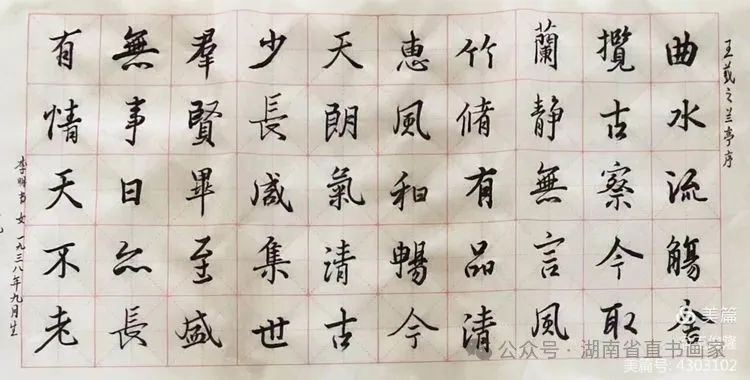 王羲之兰亭序
曲水流觴
攬古察今取
蘭靜無言風
竹脩有品清
惠風和暢今
天朗氣清古
少長咸集世
羣賢畢至盛
無事日亦長
有情天不老
李明书 女 一九三八年九月生
美篇
公众号 · 湖南省直书画家
美篇号: 4303102